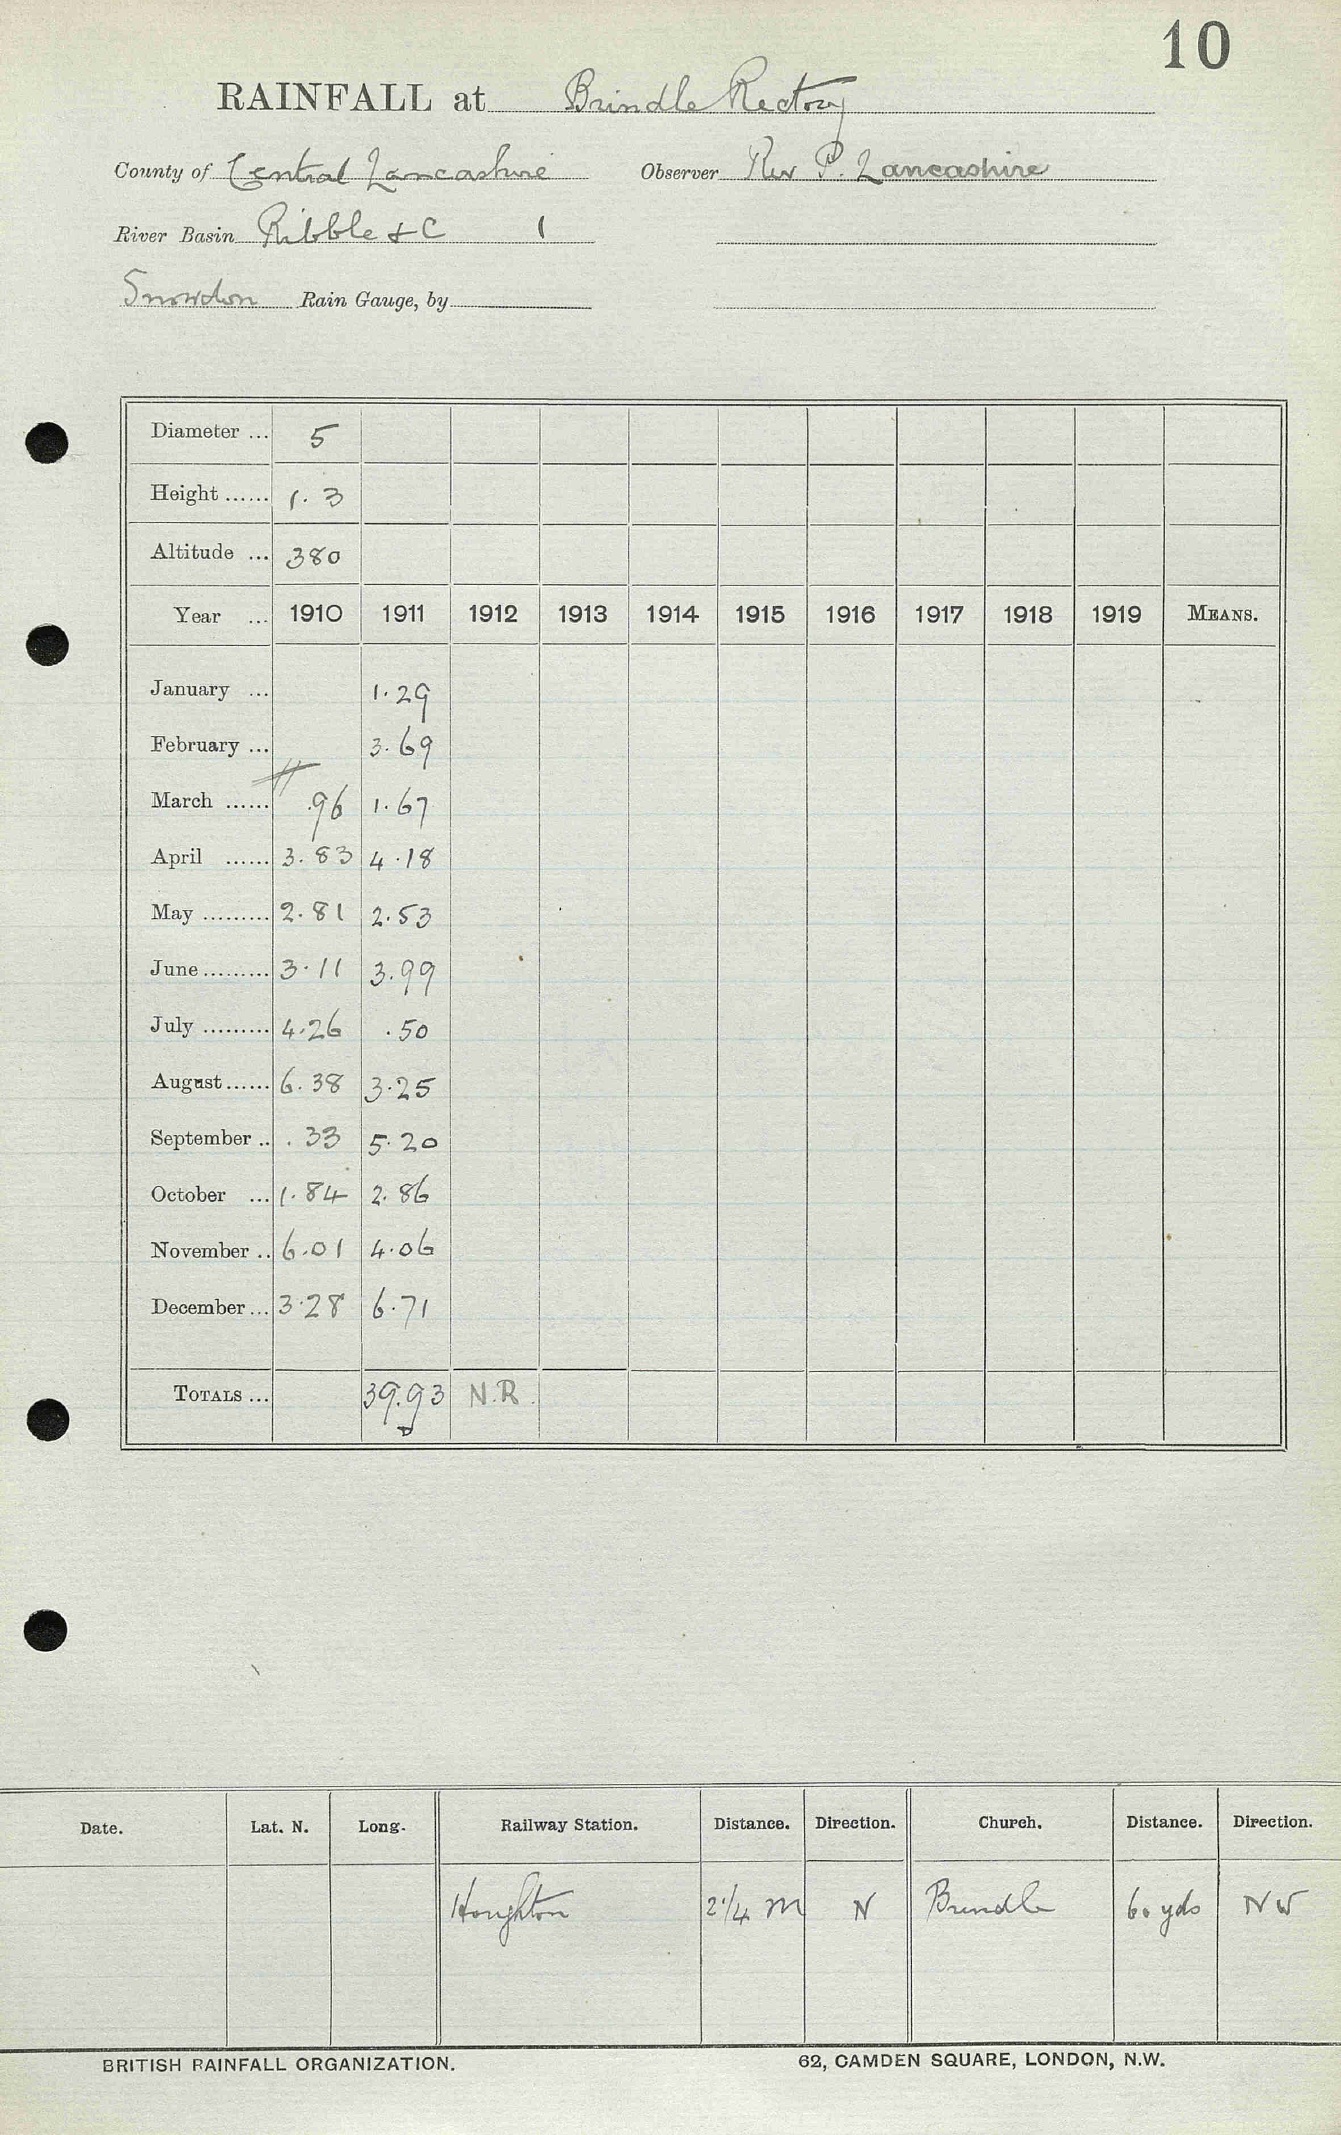 10
RAINFALL at Brindle Rectory
County of Central Lancashire Observer Rev P. Lancashire
River Basin Ribble & C 1
Snowdon Rain Gauge, by
Diameter ... 5
Height ...... 1.3
Altitude ... 380
Year ... 1910 1911 1912 1913 1914 1915 1916 1917 1918 1919 MEANS.
January ... 1.29
February ... 3.69
March ...... .96 1.67
April ...... 3.83 4.18
May ......... 2.81 2.53
June ......... 3.11 3.99
July ......... 4.26 .50
August ...... 6.38 3.25
September .. .33 5.20
October ... 1.84 2.86
November .. 6.01 4.06
December ... 3.28 6.71
TOTALS ... 39.93 N.R.
D
Date. Lat. N. Long. Railway Station. Distance. Direction. Church. Distance. Direction.
Houghton 2 1/4 m N Brindle 60 yds NW
BRITISH RAINFALL ORGANIZATION. 62, CAMDEN SQUARE, LONDON, N.W.